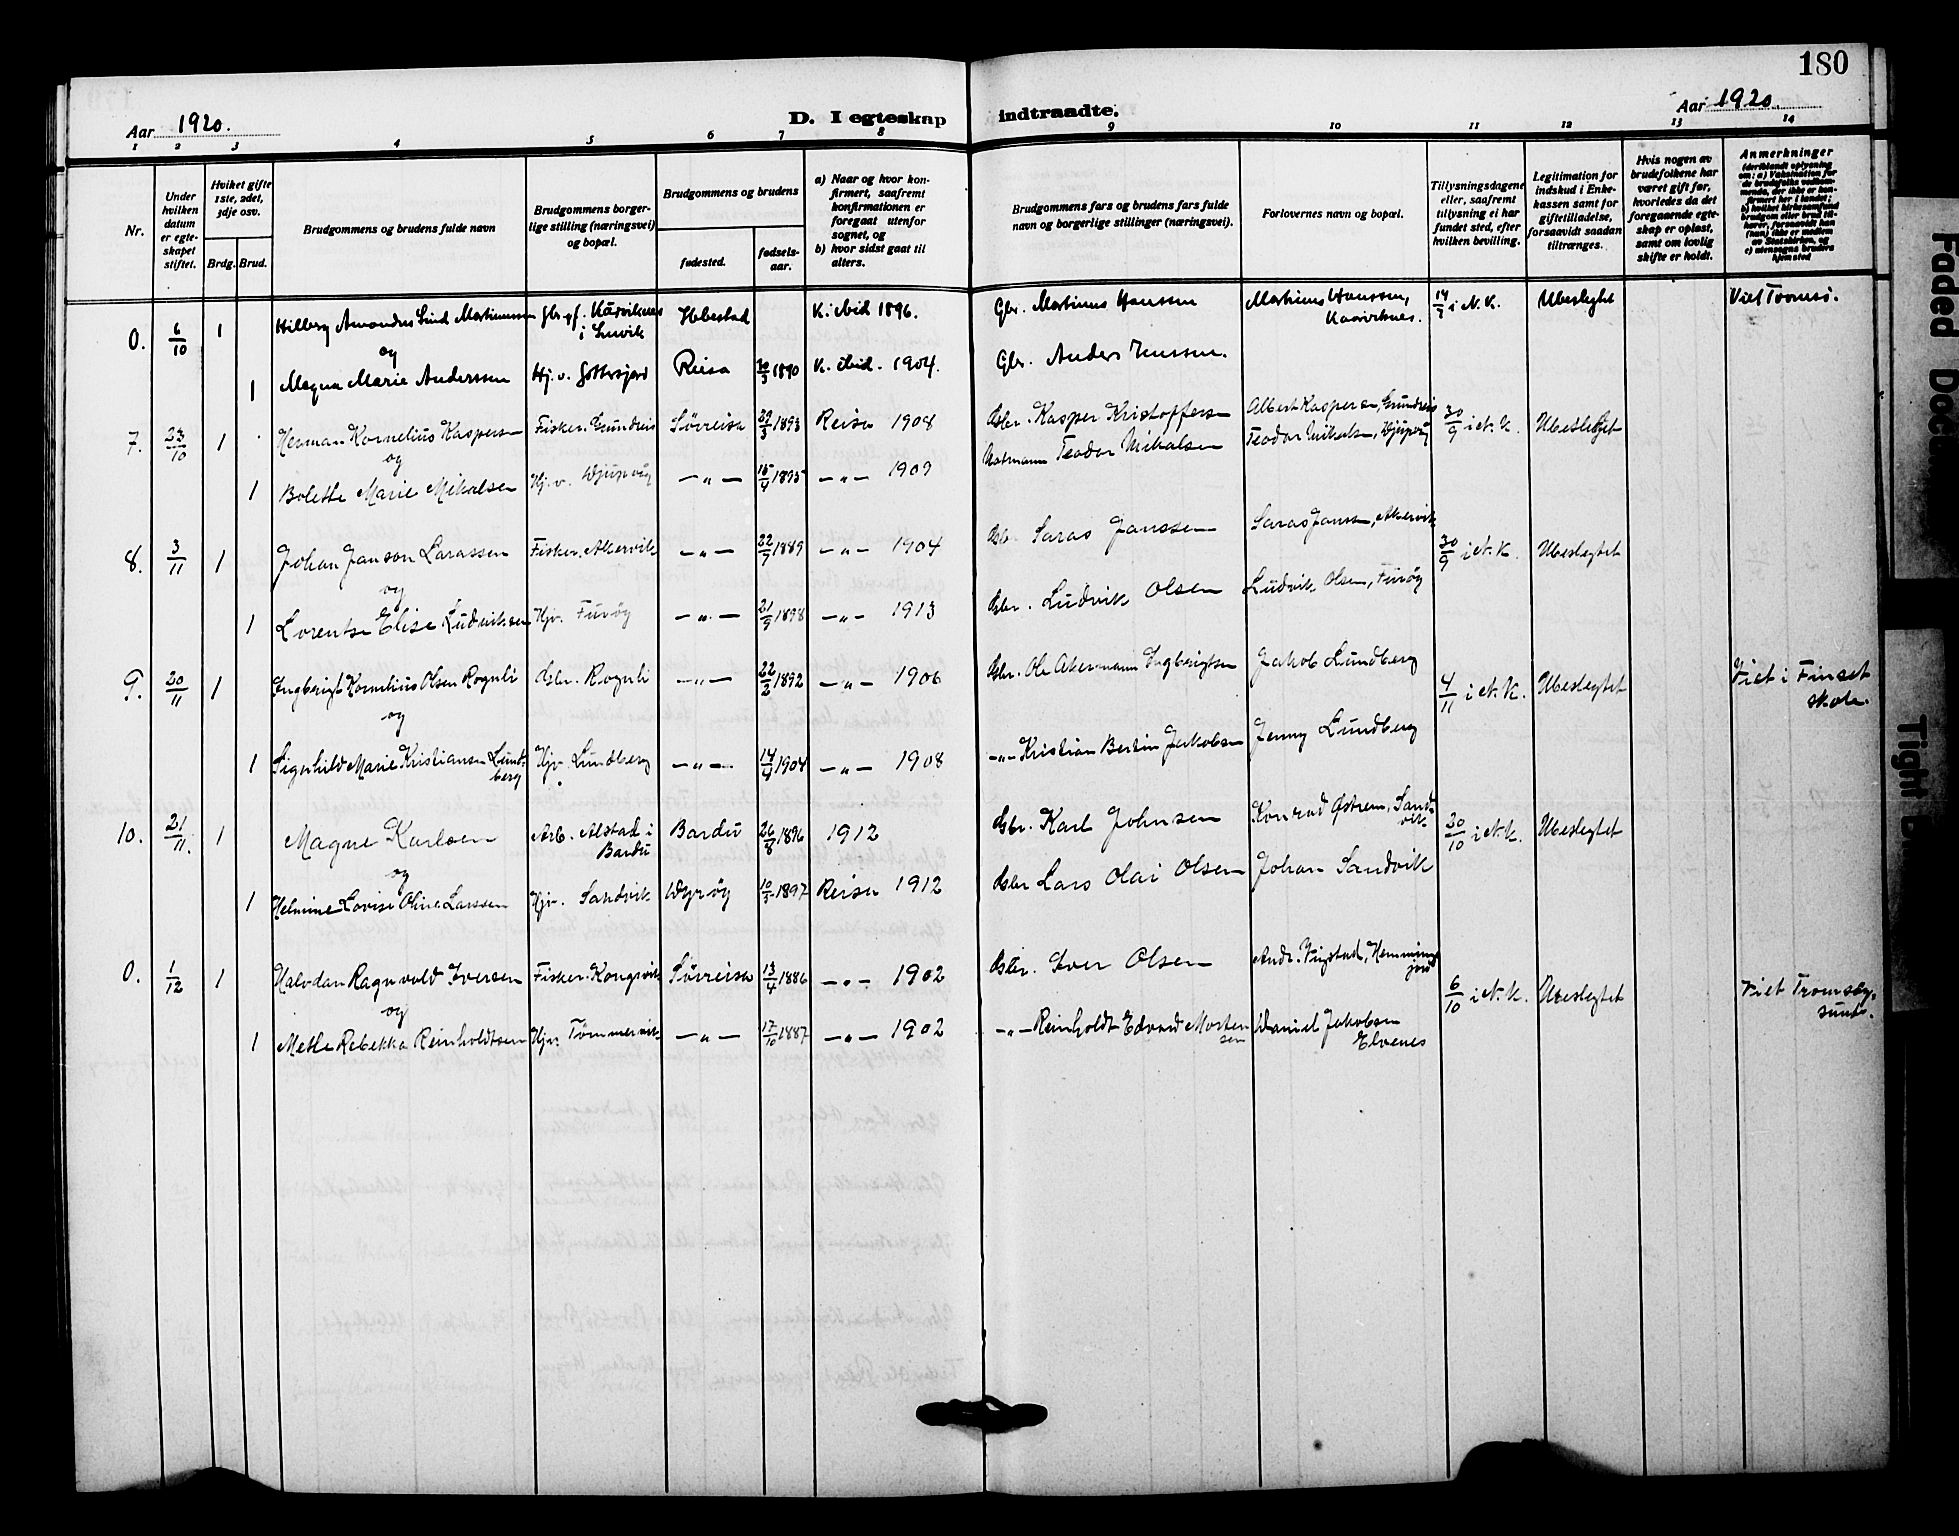 180
Aar 1920.
D. I egteskap indtraadte.
Aar 1920.
1 2 3 4 5 6 7 8 9 10 11 12 13 14
Nr.
Under hvilken datum er egteskapet stiftet.
Hviket gifte 1ste, 2det, 3dje osv.
Brdg. Brud.
Brudgommens og brudens fulde navn
Brudgommens borgerlige stilling (næringsvei) og bopæl.
Brudgommens og brudens
fødested.
fødselsaar.
a) Naar og hvor konfirmert, saafremt konfirmationen er foregaat utenfor sognet, og
b) hvor sidst gaat til alters.
Brudgommens fars og brudens fars fulde navn og borgerlige stillinger (næringsvei).
Forlovernes navn og bopæl.
Tillysningsdagene eller, saafremt tillysning ei har fundet sted, efter hvilken bevilling.
Legitimation for indskud i Enkekassen samt for giftetilladelse, forsaavidt saadan tiltrænges.
Hvis nogen av brudefolkene har været gift før, hvorledes da det foregaaende egteskap er opløst, samt om lovlig skifte er holdt.
Anmerkninger
0. 6/10 1 Hilberg Amandus Lind Martinussen Gbr. Kårviknes i Lenvik Ibestad K. ibid 1896. Gbr. Martinus Hanssen Martinus Hanssen, Kaarviknes. i N.K. Ubeslegtet Viet Tromsø.
og
1 Magna Marie Anderssen Hj. v. Reisa 1890 K. ibid. 1904. Gbr. Anders Jenssen.
7. 23/10 1 Herman Kornelius Kaspersen Fisker. Grundreis Sørreisa 1893 Reisa 1908 Gbr. Kasper Kristoffersen Albert Kaspersen, Grundreis 30/9 i N.K. Ubeslegtet
og
1 Bolette Marie Mikalsen Hj. v. Djupvåg —„— 15/4 1895 —„— 1909 Teodor Mikalsen Teodor Mikalsen, Djupvåg
8. 3/11 1 Johan Janson Larassen Fisker. Akervik —„— 22/7 1889 —„— 1904 Gbr. Saras Janssen Saras Janssen, Akervik 30/9 i N.K. Ubeslegtet
og
1 Lorentse Elise Ludviksen Hjv. Furøy —„— 21/9 1898 —„— 1913 Gbr. Ludvik Olsen Ludvik Olsen, Furøy
9. 20/11 1 Ingbrigt Kornelius Olsen Rognli Gbr. Rognli —„— 22/2 1892 —„— 1906 Gbr. Ole Akermann Ingbrigtsen Jakob Lundberg 4/11 i N.K. Ubeslegtet Viet i Finset skole.
og
1 Signhild Marie Kristiansen Lundberg Hjv. Lundberg —„— 14/9 1904 —„— 1908 —„— Kristian Bertin Jakobsen Jenny Lundberg
10. 21/11. 1 Magne Karlsen Arb. Alstad i Bardu Bardu 26/8 1896 1912 Gbr. Karl Johnsen Konrad Østrem, Sandvik 30/10 i N.K. Ubeslegtet
og
1 Helmine Lovise Oline Larssen Hjv. Sandvik Dyrøy 10/3 1897 Reisa 1912 Gbr. Lars Olai Olsen Johan Sandvik
0. 1/12 1 Halvdan Ragnvald Iversen Fisker. Kongsvik Sørreisa 13/4 1886 —„— 1902 Gbr. Iver Olsen Andr. Vigstad, Hemmingsjord 6/10 i N.K. Ubeslegtet Viet Tromsøysund.
og
1 Mette Rebekka Reinholdtsen Hjv. Tømmervik —„— 17/10 1887 —„— 1902 —„— Reinholdt Edvard Mortensen Daniel Jakobsen Elvenes
Faded
Tight